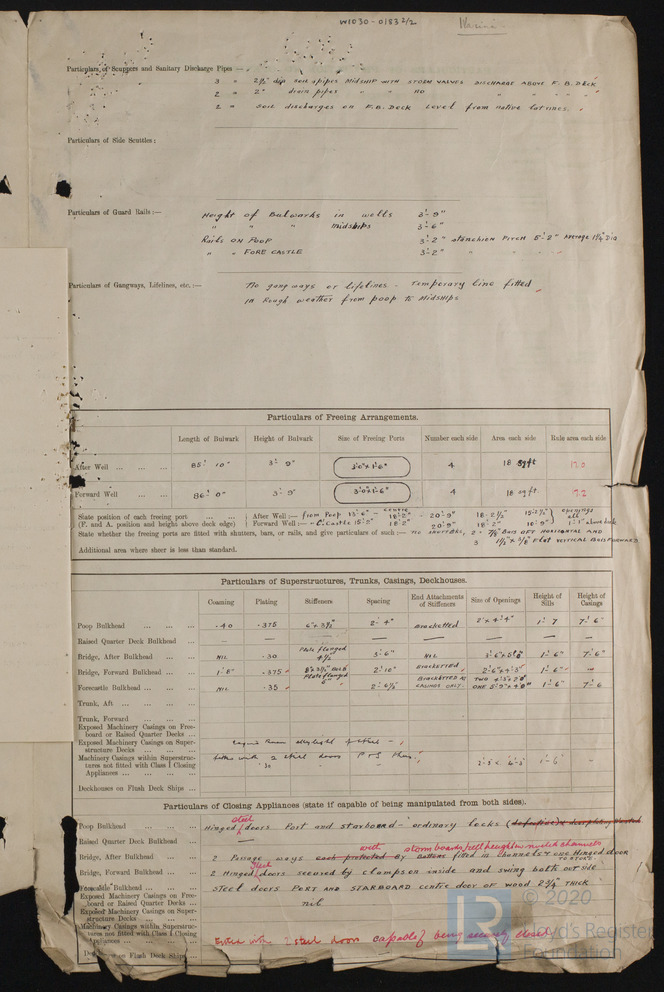 W1030-0183 2/2
Particulars of Scuppers and Sanitary Discharge Pipes —
3 " 2½" dia soil pipes MIDSHIP WITH STORM VALVES DISCHARGE ABOVE F.B. DECK
2 = 2" drain pipes " " no " " " "
2 = Soil discharges on F.B. DECK level from native latrines.
Particulars of Side Scuttles:
Particulars of Guard Rails:—
Height of Bulwarks in wells 3'-9"
" " " midships 3'-6"
Rails on Poop 3'-2" stanchion PITCH 5'-2" Average 1¼" Dia
" " FORE CASTLE 3'-2" " " "
Particulars of Gangways, Lifelines, etc.:—
No gangways or lifelines - Temporary line fitted
in Rough weather from poop to Midships
Particulars of Freeing Arrangements.
Length of Bulwark Height of Bulwark Size of Freeing Ports Number each side Area each side Rule area each side
After Well ... ... ... 85'-10" 3'-9" 3'-0"x1'-6" 4 18 sq ft 17.0
Forward Well ... ... 86'-0" 3'-9" 3'-0"x1'-6" 4 18 sq ft
State position of each freeing port } After Well:— from Poop 13'-6" - 18'-2" - 20'-9" 18'-2½" 15'-2½" openings all
(F. and A. position and height above deck edge) } Forward Well:— 15'-2" 18'-2" 20'-9" 18'-2" above deck
State whether the freeing ports are fitted with shutters, bars, or rails, and give particulars of such:— no shutters, 2 - 7/8" Bars AFT HORIZONTAL AND
3 Flat VERTICAL BARS FORWARD
Additional area where sheer is less than standard.
Particulars of Superstructures, Trunks, Casings, Deckhouses.
Coaming Plating Stiffeners Spacing End Attachments of Stiffeners Size of Openings Height of Sills Height of Casings
Poop Bulkhead ... ... ... .40 .375 6"x3½" 2'-4" Bracketted 2'x4'-4" 1'-7 7'-6"
Raised Quarter Deck Bulkhead ... — — — — — — —
Bridge, After Bulkhead ... ... NIL .30 Plate flanged 4½" 3'-6" NIL 1'-6" 7'-6"
Bridge, Forward Bulkhead ... ... 1'-8" .375 2'-10" BRACKETTED 1'-6"
Forecastle Bulkhead ... ... ... NIL .35 Plate flanged 6" 2'-6½" BRACKETTED AT CASINGS ONLY 1'-6" 7'-6
Trunk, Aft ... ... ... ...
Trunk, Forward ... ... ...
Exposed Machinery Casings on Freeboard or Raised Quarter Decks ...
Exposed Machinery Casings on Superstructure Decks ... ... ... Engine Room skylight of steel -
Machinery Casings within Superstructures not fitted with Class I Closing Appliances ... ... ... fitted with 2 steel doors P & S 1'-6"
Deckhouses on Flush Deck Ships ...
Particulars of Closing Appliances (state if capable of being manipulated from both sides).
Poop Bulkhead ... ... ... Hinged steel doors Port and starboard - ordinary locks
Raised Quarter Deck Bulkhead ... —
Bridge, After Bulkhead ... ... 2 Passage ways each protected By with storm boards full height in channels
Bridge, Forward Bulkhead ... ... 2 Hinged steel doors secured by clamps on inside and swing bolts outside
Forecastle Bulkhead ... ... ... steel doors PORT AND STARBOARD centre door OF WOOD 2¾" THICK
Exposed Machinery Casings on Freeboard or Raised Quarter Decks ... nil
Exposed Machinery Casings on Superstructure Decks ... ... ...
Machinery Casings within Superstructures not fitted with Class I Closing Appliances ... ... ... Fitted with 2 steel doors capable of being securely closed
on Flush Deck Ships ...
LR © 2020
Lloyd's Register
Foundation